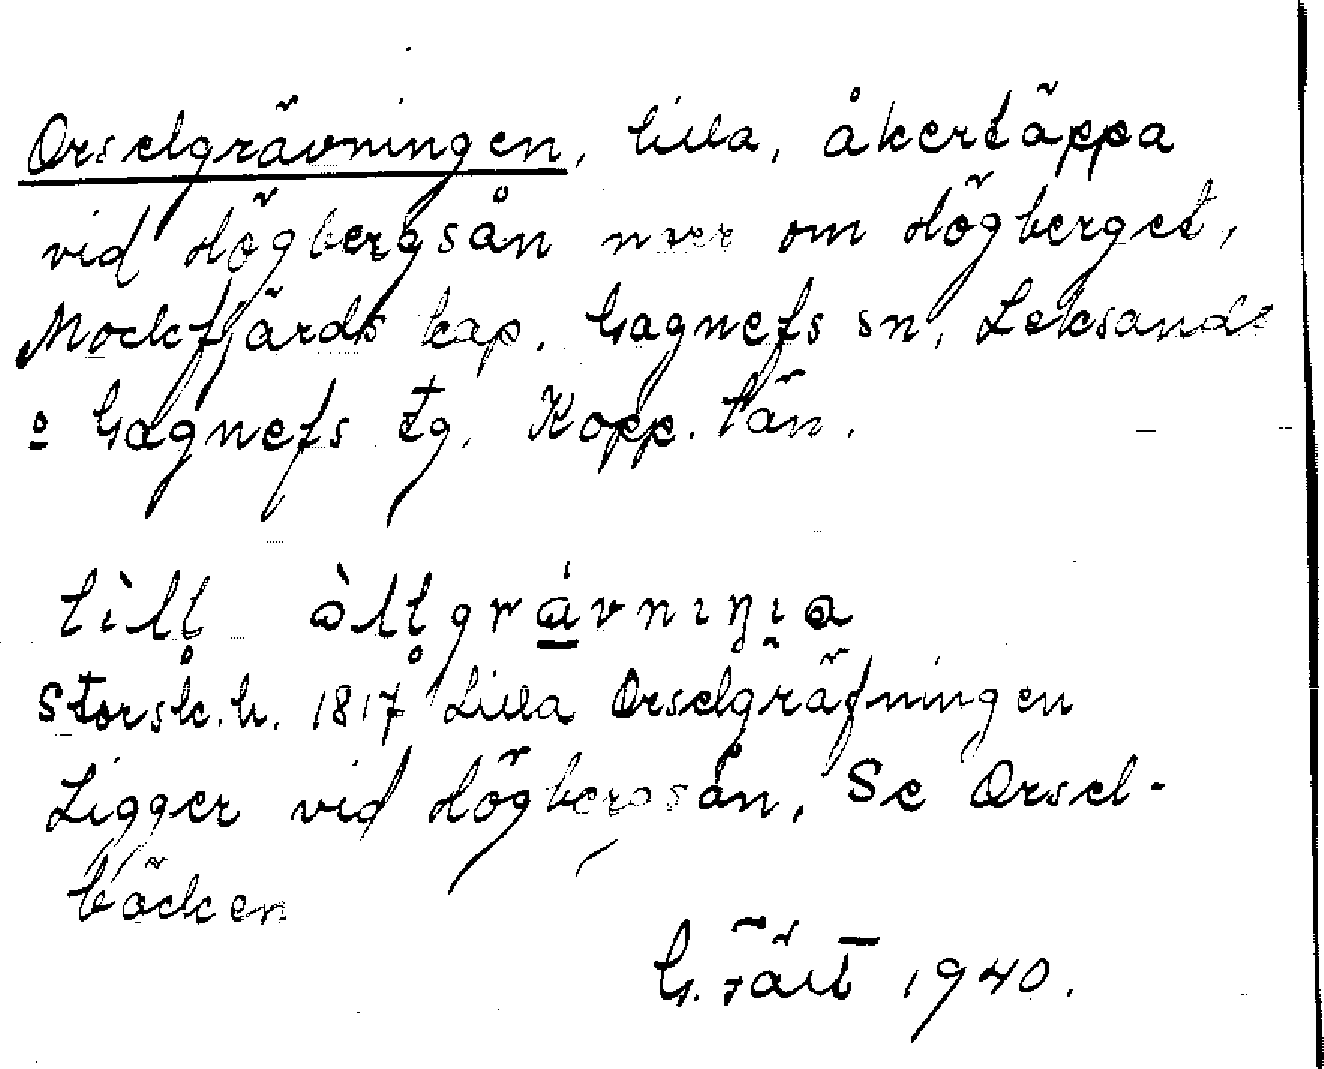 Orselgrävningen, lilla, åkertäppa
vid Högbergsån norr om Högberget,
Mockfjärds kap. Gagnefs sn, Leksands
o Gagnefs tg. Kopp. län.
Storsk.h. 1817 Lilla Orselgräfningen
Ligger vid Högbergsån. Se Orsel-
bäcken
G. Fält 1940.